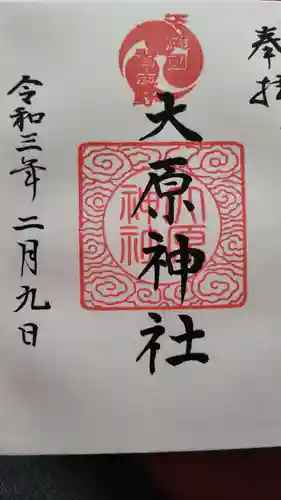 奉拝
大原神社
大原
神社
令和三年二月九日